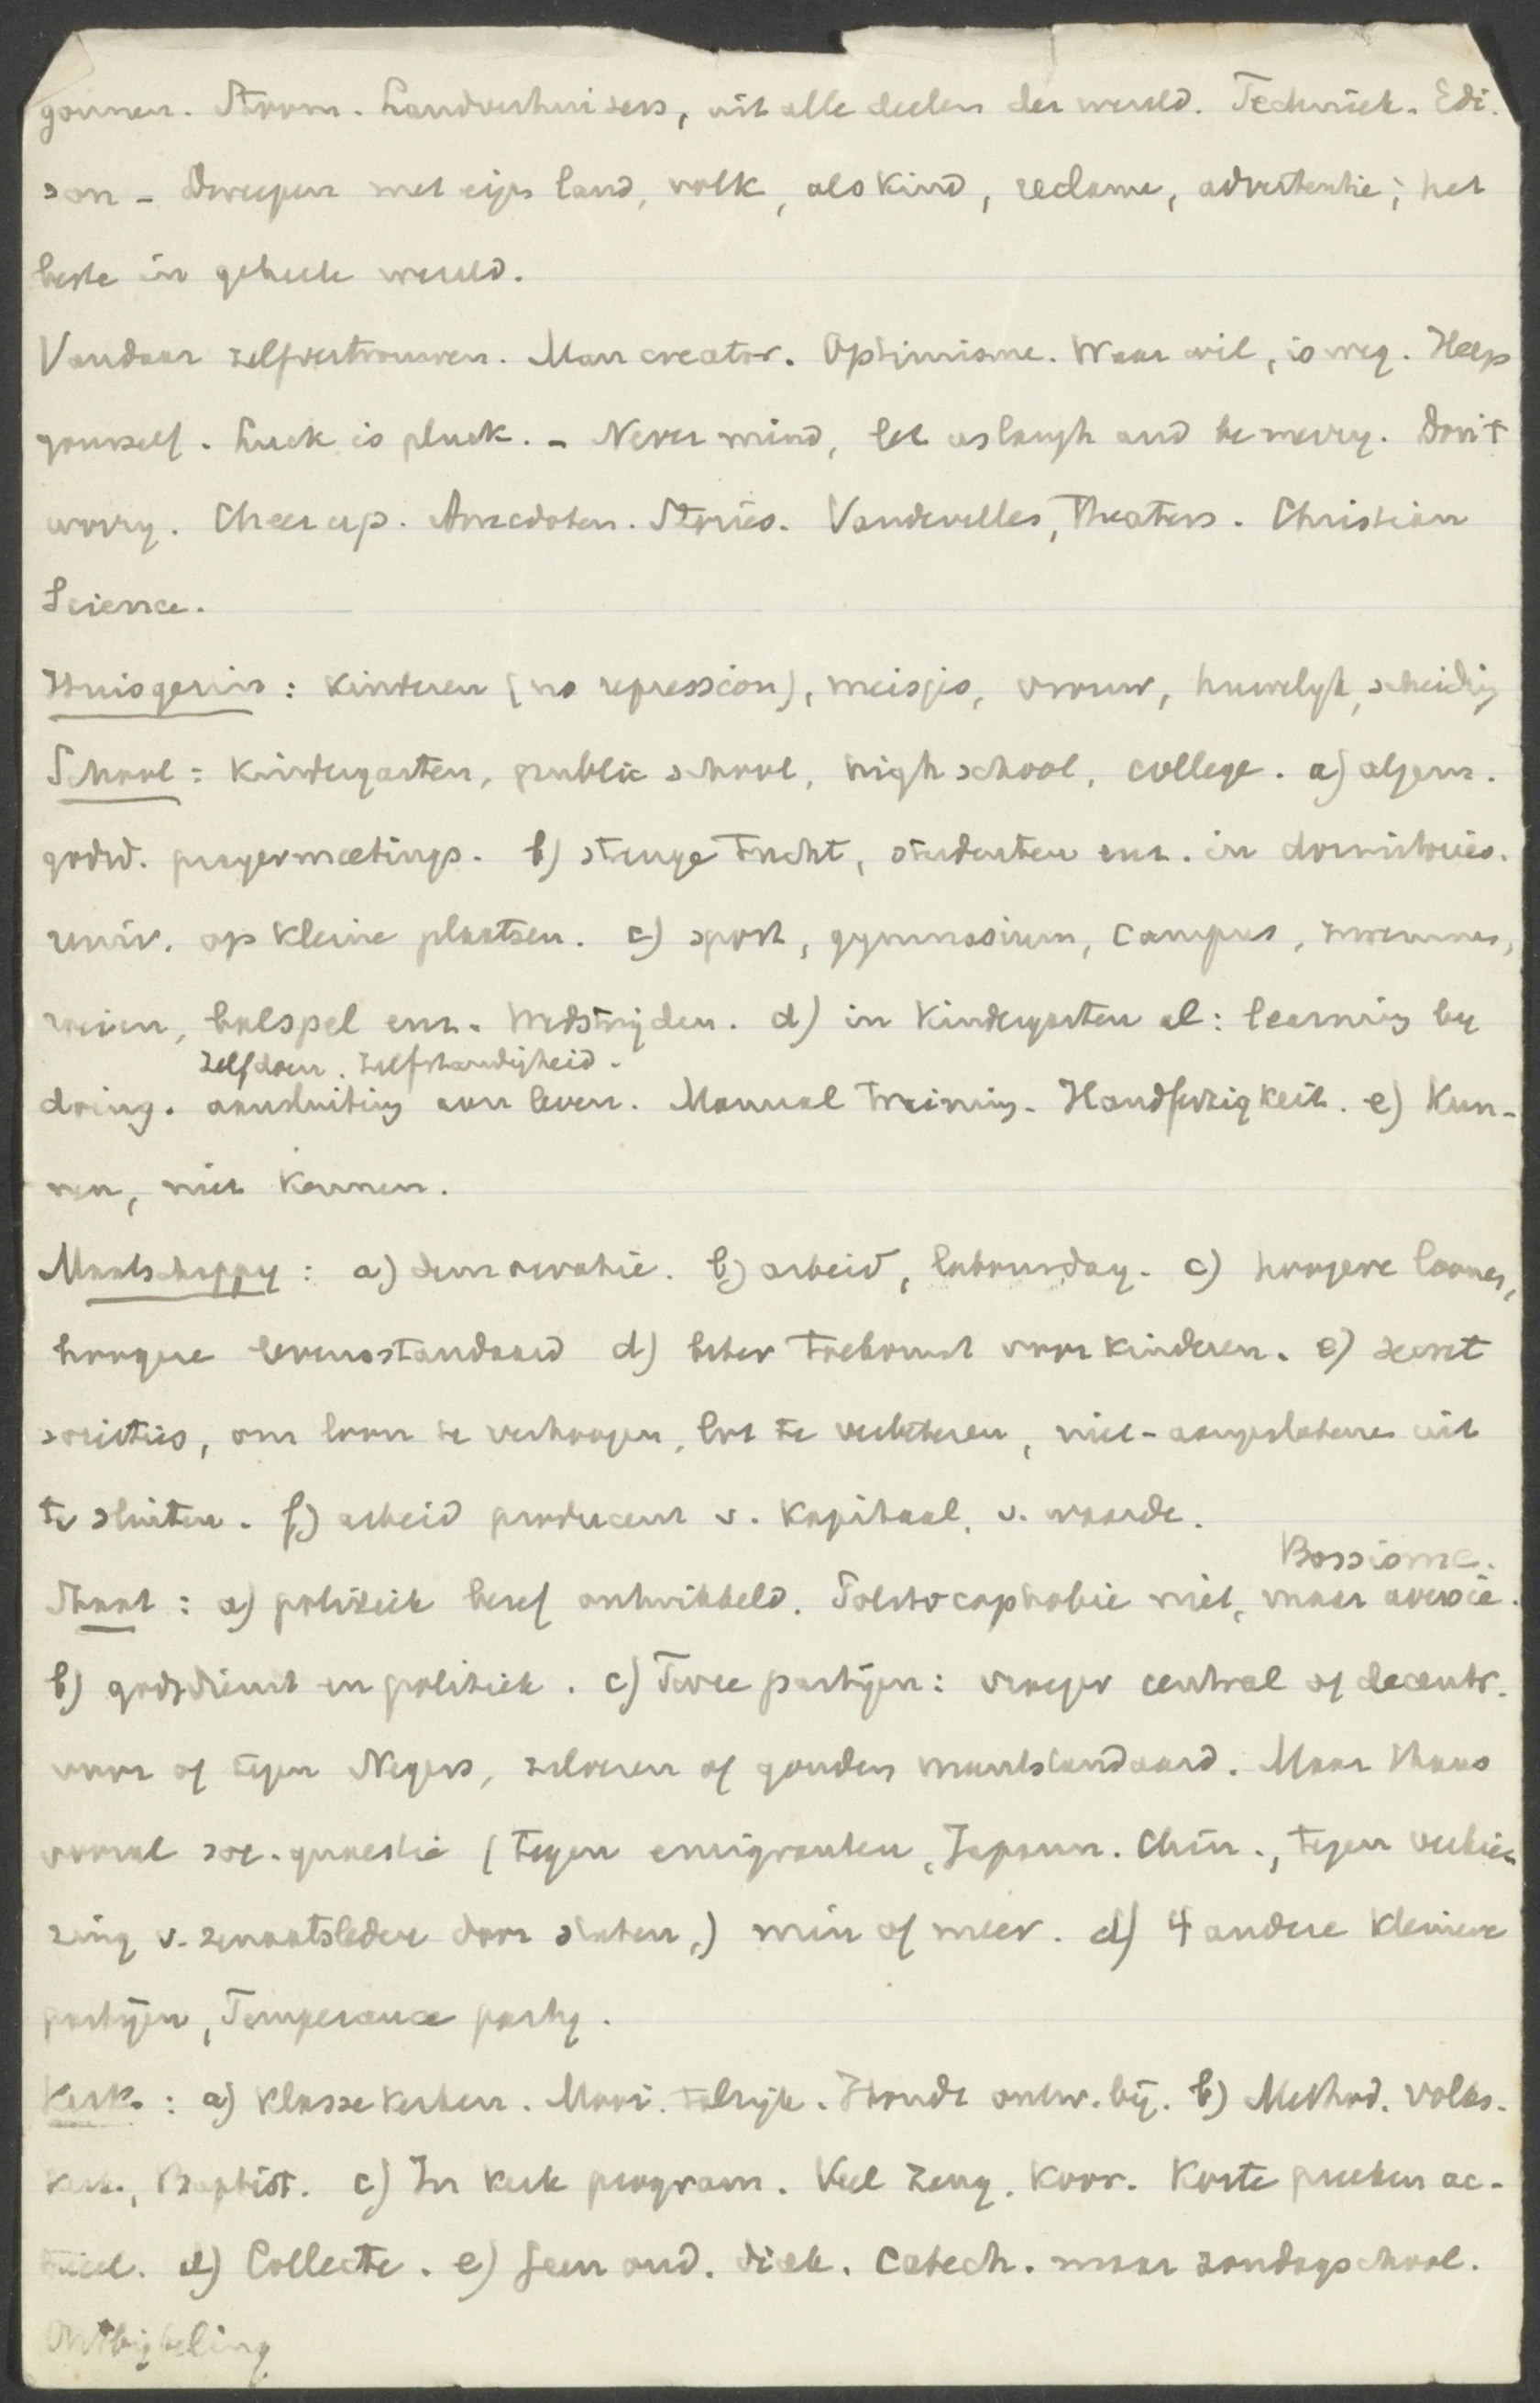 gonnen. Stroom. Landverhuizers, uit alle deelen der wereld. Techniek. Edi-
son - Dweepen met eigen land, volk, als kind, reclame, advertentie; het
beste in geheele wereld.
Vandaar zelfvertrouwen. Man creator. Optimisme. Waar wil, is weg. Help
yourself. Luck is pluck. - Never mind, let us laugh and be merry. Don't
worry. Cheer up. Anecdoten. Stories. Vaudevilles, Theaters. Christian
Science.
Huisgezin: kinderen (no repression), meisjes, vrouw, huwelijk, scheiding
School: Kindergarten, public school, high school, college. a) algem.
godsd. prayermeetings. b) strenge tucht, studenten enz. in dormitories.
univ. op kleine plaatsen. c) sport, gymnasium, campus, zwemmen,
roeien, balspel enz. Wedstrijden. d) in Kindergarten al: learning by
zelfdoen. zelfstandigheid.
doing. aansluiting aan leven. Manual training. Handfertigkeit. e) Kun-
nen, niet kennen.
Maatschappy: a) democratie. b) arbeid, laboursday. c) hoogere loonen,
hoogere levensstandaard d) beter toekomst voor kinderen. e) secret
societies, om loon te verhoogen, lot te verbeteren, niet-aangeslotenen uit
te sluiten. f) arbeid producent v. kapitaal, v. waarde.
Bossisme.
Staat: a) politiek besef ontwikkeld. niet, maar aversie.
b) godsdienst en politiek. c) Twee partijen: vroeger central of decentr.
voor of tegen Negers, zilveren of gouden muntstandaard. Maar thans
vooral soc. quaestie (tegen emigranten, Japann. Chin., tegen verkie-
zing v. senaatsleden door staten,) min of meer. d) 4 andere kleinere
partijen, Temperance party.
Kerk: a) klassekerken. Mooi. talrijk. Houdt ontw. bij. b) Method. volks-
kerk, Baptist. c) In kerk program. Veel zang. Koor. Korte preeken ac-
tueel. d) Collecte. e) Geen oud. diak. Catech. maar zondagschool.
Ontbijbeling